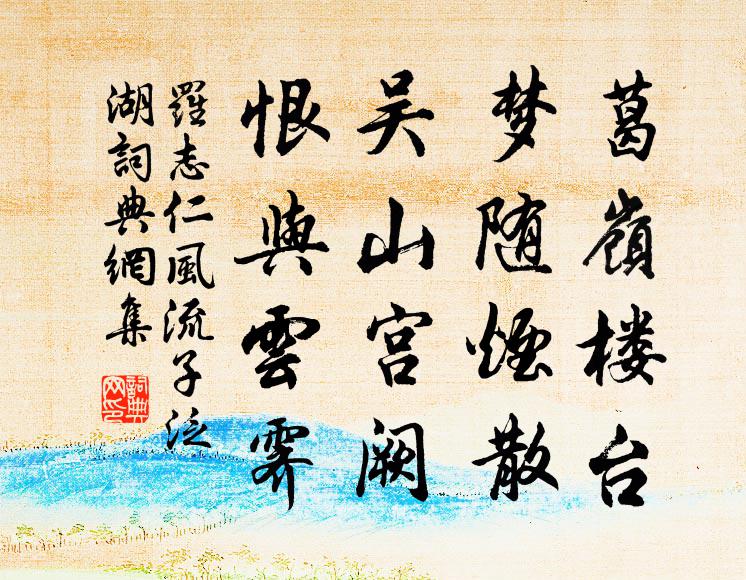 葛嶺楼台
梦随煙散
吴山宫阙
恨與雲霁
羅志仁風流子泛
湖詞典網集
詞典网印